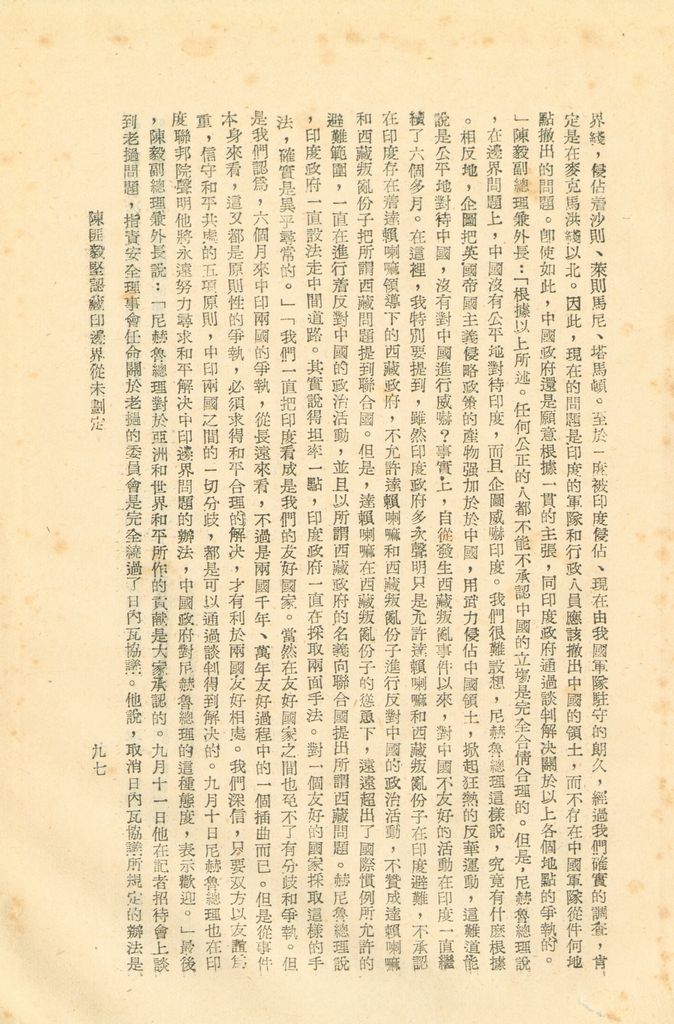 界綫，侵佔着沙則、萊則馬尼、塔馬頓。至於一度被印度侵佔、現在由我國軍隊駐守的朗久，經過我們確實的調查，肯
定是在麥克馬洪綫以北。因此，現在的問題是印度的軍隊和行政人員應該撤出中國的領土，而不存在中國軍隊從什何地
點撤出的問題。卽使如此，中國政府還是願意根據一貫的主張，同印度政府通過談判解決關於以上各個地點的爭執的。
」陳毅副總理兼外長：「根據以上所述。任何公正的人都不能不承認中國的立塲是完全合情合理的。但是，尼赫魯總理說
，在邊界問題上，中國沒有公平地對待印度，而且企圖威嚇印度。我們很難設想，尼赫魯總理這樣說，究竟有什麽根據
。相反地，企圖把英國帝國主義侵略政策的產物强加於於中國，用武力侵佔中國領土，掀起狂熱的反華運動，這難道能
說是公平地對待中國，沒有對中國進行威嚇？事實上，自從發生西藏叛亂事件以來，對中國不友好的活動在印度一直繼
續了六個多月。在這裡，我特別要提到，雖然印度政府多次聲明只是允許達賴喇嘛和西藏叛亂份子在印度避難，不承認
在印度存在着達賴喇嘛領導下的西藏政府，不允許達賴喇嘛和西藏叛亂份子進行反對中國的政治活動，不贊成達賴喇嘛
和西藏叛亂份子把所謂西藏問題提到聯合國。但是，達賴喇嘛在西藏叛亂份子的慫恿下，遠遠超出了國際慣例所允許的
避難範圍，一直在進行着反對中國的政治活動，並且以所謂西藏政府的名義向聯合國提出所謂西藏問題。赫尼魯總理說
，印度政府一直設法走中間道路。其實說得坦率一點，印度政府一直在採取兩面手法。對一個友好的國家採取這樣的手
法，確實是異乎尋常的。」「我們一直把印度看成是我們的友好國家。當然在友好國家之間也免不了有分歧和爭執。但
是我們認爲，六個月來中印兩國的爭執，從長遠來看，不過是兩國千年、萬年友好過程中的一個插曲而已。但是從事件
本身來看，這又都是原則性的爭執，必須求得和平合理的解決，才有利於兩國友好相處。我們深信，只要双方以友誼爲
重，信守和平共處的五項原則，中印兩國之間的一切分歧，都是可以通過談判得到解決的。九月十日尼赫魯總理也在印
度聯邦院聲明他將永遠努力尋求和平解决中印邊界問題的辦法，中國政府對尼赫魯總理的這種態度，表示歡迎。」最後
，陳毅副總理兼外長說：「尼赫魯總理對於亞洲和世界和平所作的貢獻是大家承認的。九月十一日他在記者招待會上談
到老撾問題，指責安全理事會任命關於老撾的委員會是完全繞過了日內瓦協議。他說，取消日內瓦協議所規定的辦法是
陳匪毅堅認藏印邊界從未劃定
九七